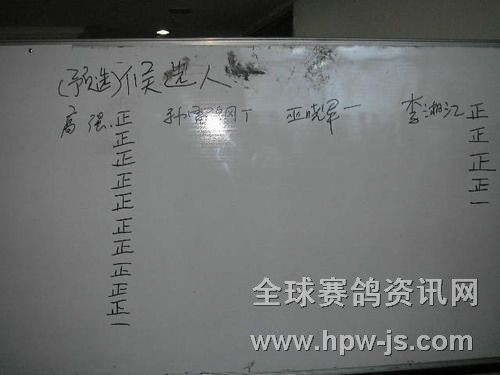 (预选)候选人
高强.正 孙 钢丅 晓军一 李湘江正
正 正
正 正
正 正
正 一
正
正
正
正
正
一
全球赛鸽资讯网
www.hpw-js.com